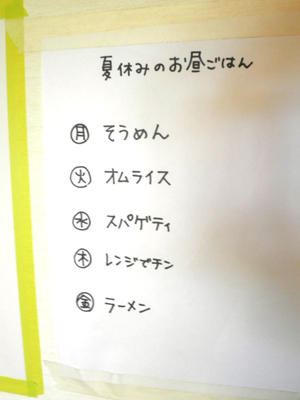 夏休みのお昼ごはん
㊊ そうめん
㊋ オムライス
㊌ スパゲティ
㊍ レンジでチン
㊎ ラーメン